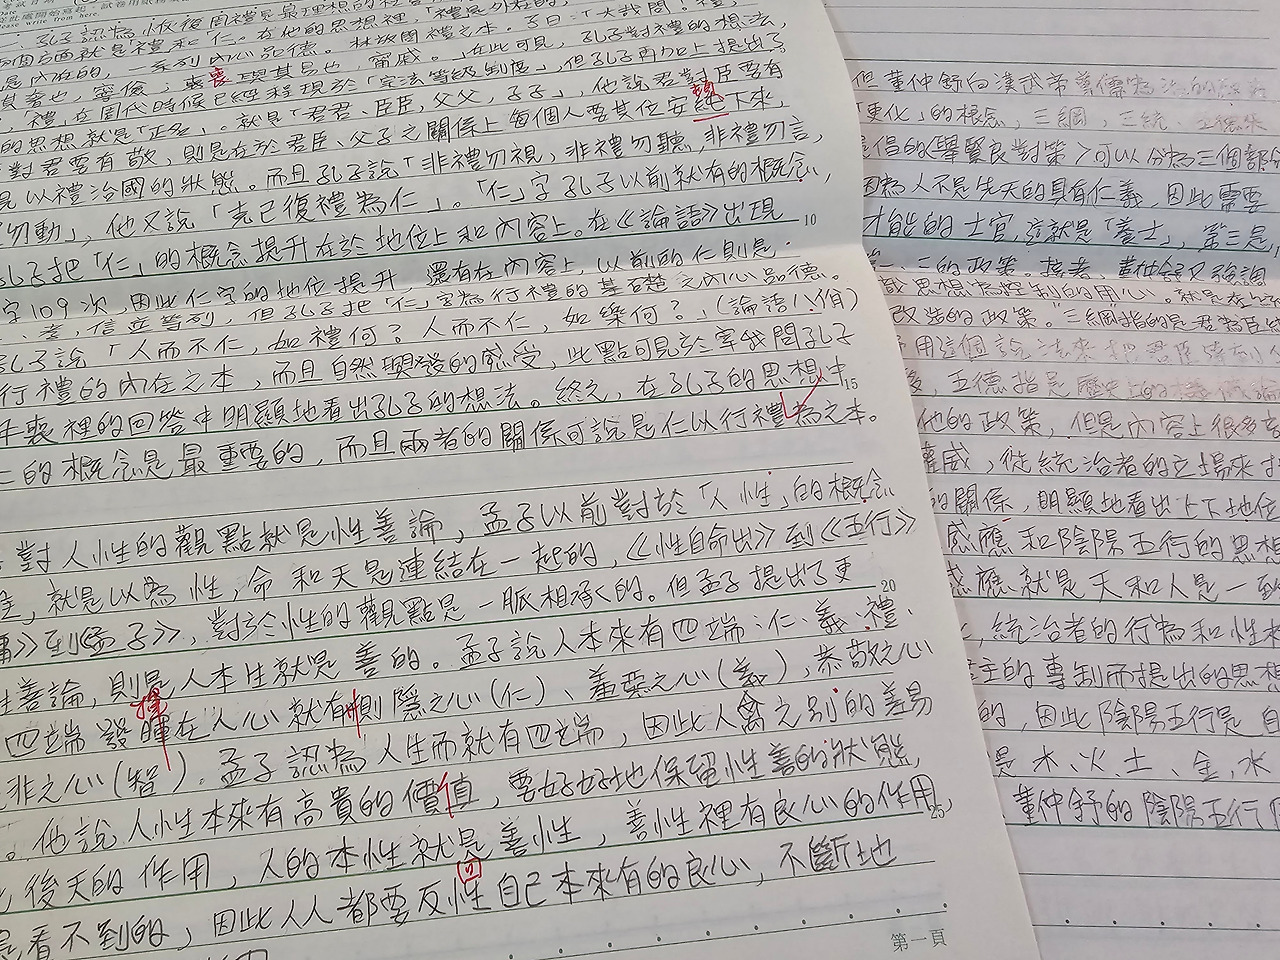 Please write from here.
孔子認為恢復周禮是最理想的社會
個名面就是「禮和仁」。在他的思想裡,「禮是外在的,
是內在的,一系列內心品德。林放問禮之本。子曰:「大哉問!禮,
其奢也,寧儉;喪與其易也,寧戚。」在此可見,孔子對禮的想法,
,「禮」在周代時候已經程現於「宗法等級制度」,但孔子再加上提出了
的思想就是「正名」。就是「君君、臣臣、父父,子子」,他說君對臣要有
對君要有敬,則是在於君臣、父子之關係上每個人要其位安下來,
是以禮治國的狀態。而且孔子說「非禮勿視,非禮勿聽,非禮勿言,
勿動」,他又說「克己復禮為仁」。「仁」字孔子以前就有的概念,
孔子把「仁」的概念提升在於地位上和內容上。在《論語》出現
10
字109次,因此仁字的地位提升,還有在內容上,以前的仁則是
孝,信並等列,但孔子把「仁」字為行禮的基礎之內心品德。
孔子說「人而不仁,如禮何?人而不仁,如樂何?」(論語八佾)
行禮的內在之本,而且自然興發的感受,此點可見於宰我問孔子
年喪裡的回答中明顯地看出孔子的想法。終之,在孔子的思想中
15
二的概念是最重要的,而且兩者的關係可說是仁以行禮為之本。
對人性的觀點就是性善論,孟子以前對於「人性」的概念
,就是以為性,命和天是連結在一起的,《性自命出》到《五行》
庸》到《孟子》,對於性的觀點是一脈相承的。但孟子提出了更
20
生善論,則是人本生就是善的。孟子說人本來有四端:仁、義、禮、
四端發揮在人心就有惻隱之心(仁)、羞惡之心(義),恭敬之心
非之心(智)。孟子認為人生而就有四端,因此人禽之別的差易
。他說人性本來有高貴的價值,要好好地保留性善的狀態,
後天的作用,人的本性就是善性,善性裡有良心的作用,
25
是看不到的,因此人人都要反回自己本來有的良心,不斷地
第一頁
但董仲舒向漢武帝
更化」的概念,三綱,三統、五德
倡的《舉賢良對策》可以分為三個部分
因為人不是先天的具有仁義,因此需要
才能的士官,這就是「養士」,第三是,
一、二的政策。接者,董仲舒又強調
思想為控制的用心。就是
改造的政策。"三綱指的是君為臣綱
用這個說法來把君臣
,五德指是歷史上的
他的政策,但是內容上很多
權威,從統治者的立場來
的關係,明顯地看出上下地位
感應和陰陽五行的思想
感應就是天和人是一致
,統治者的行為和性格
主的專制而提出的思想
的,因此陰陽五行是自
是木、火、土、金、水
董仲舒的陰陽五行